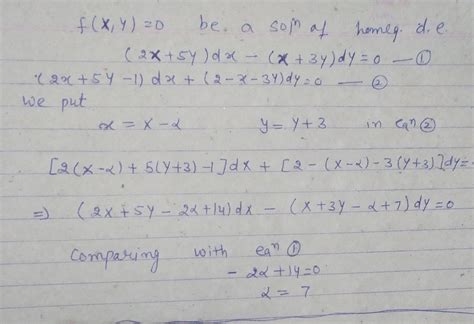 f(x,y)=0 be a solⁿ of homeg. d.e.
(2x+5y)dx - (x+3y)dy=0 —①
(2x+5y-1)dx+(2-x-3y)dy=0 —②
we put
x = X-α y = Y+3 in eqⁿ②
[2(X-α)+5(Y+3)-1]dX+[2-(X-α)-3(Y+3)]dY=
⇒) (2X+5Y-2α+14)dX - (X+3Y-α+7)dY=0
Comparing with eqⁿ①
-2α+14=0
α = 7